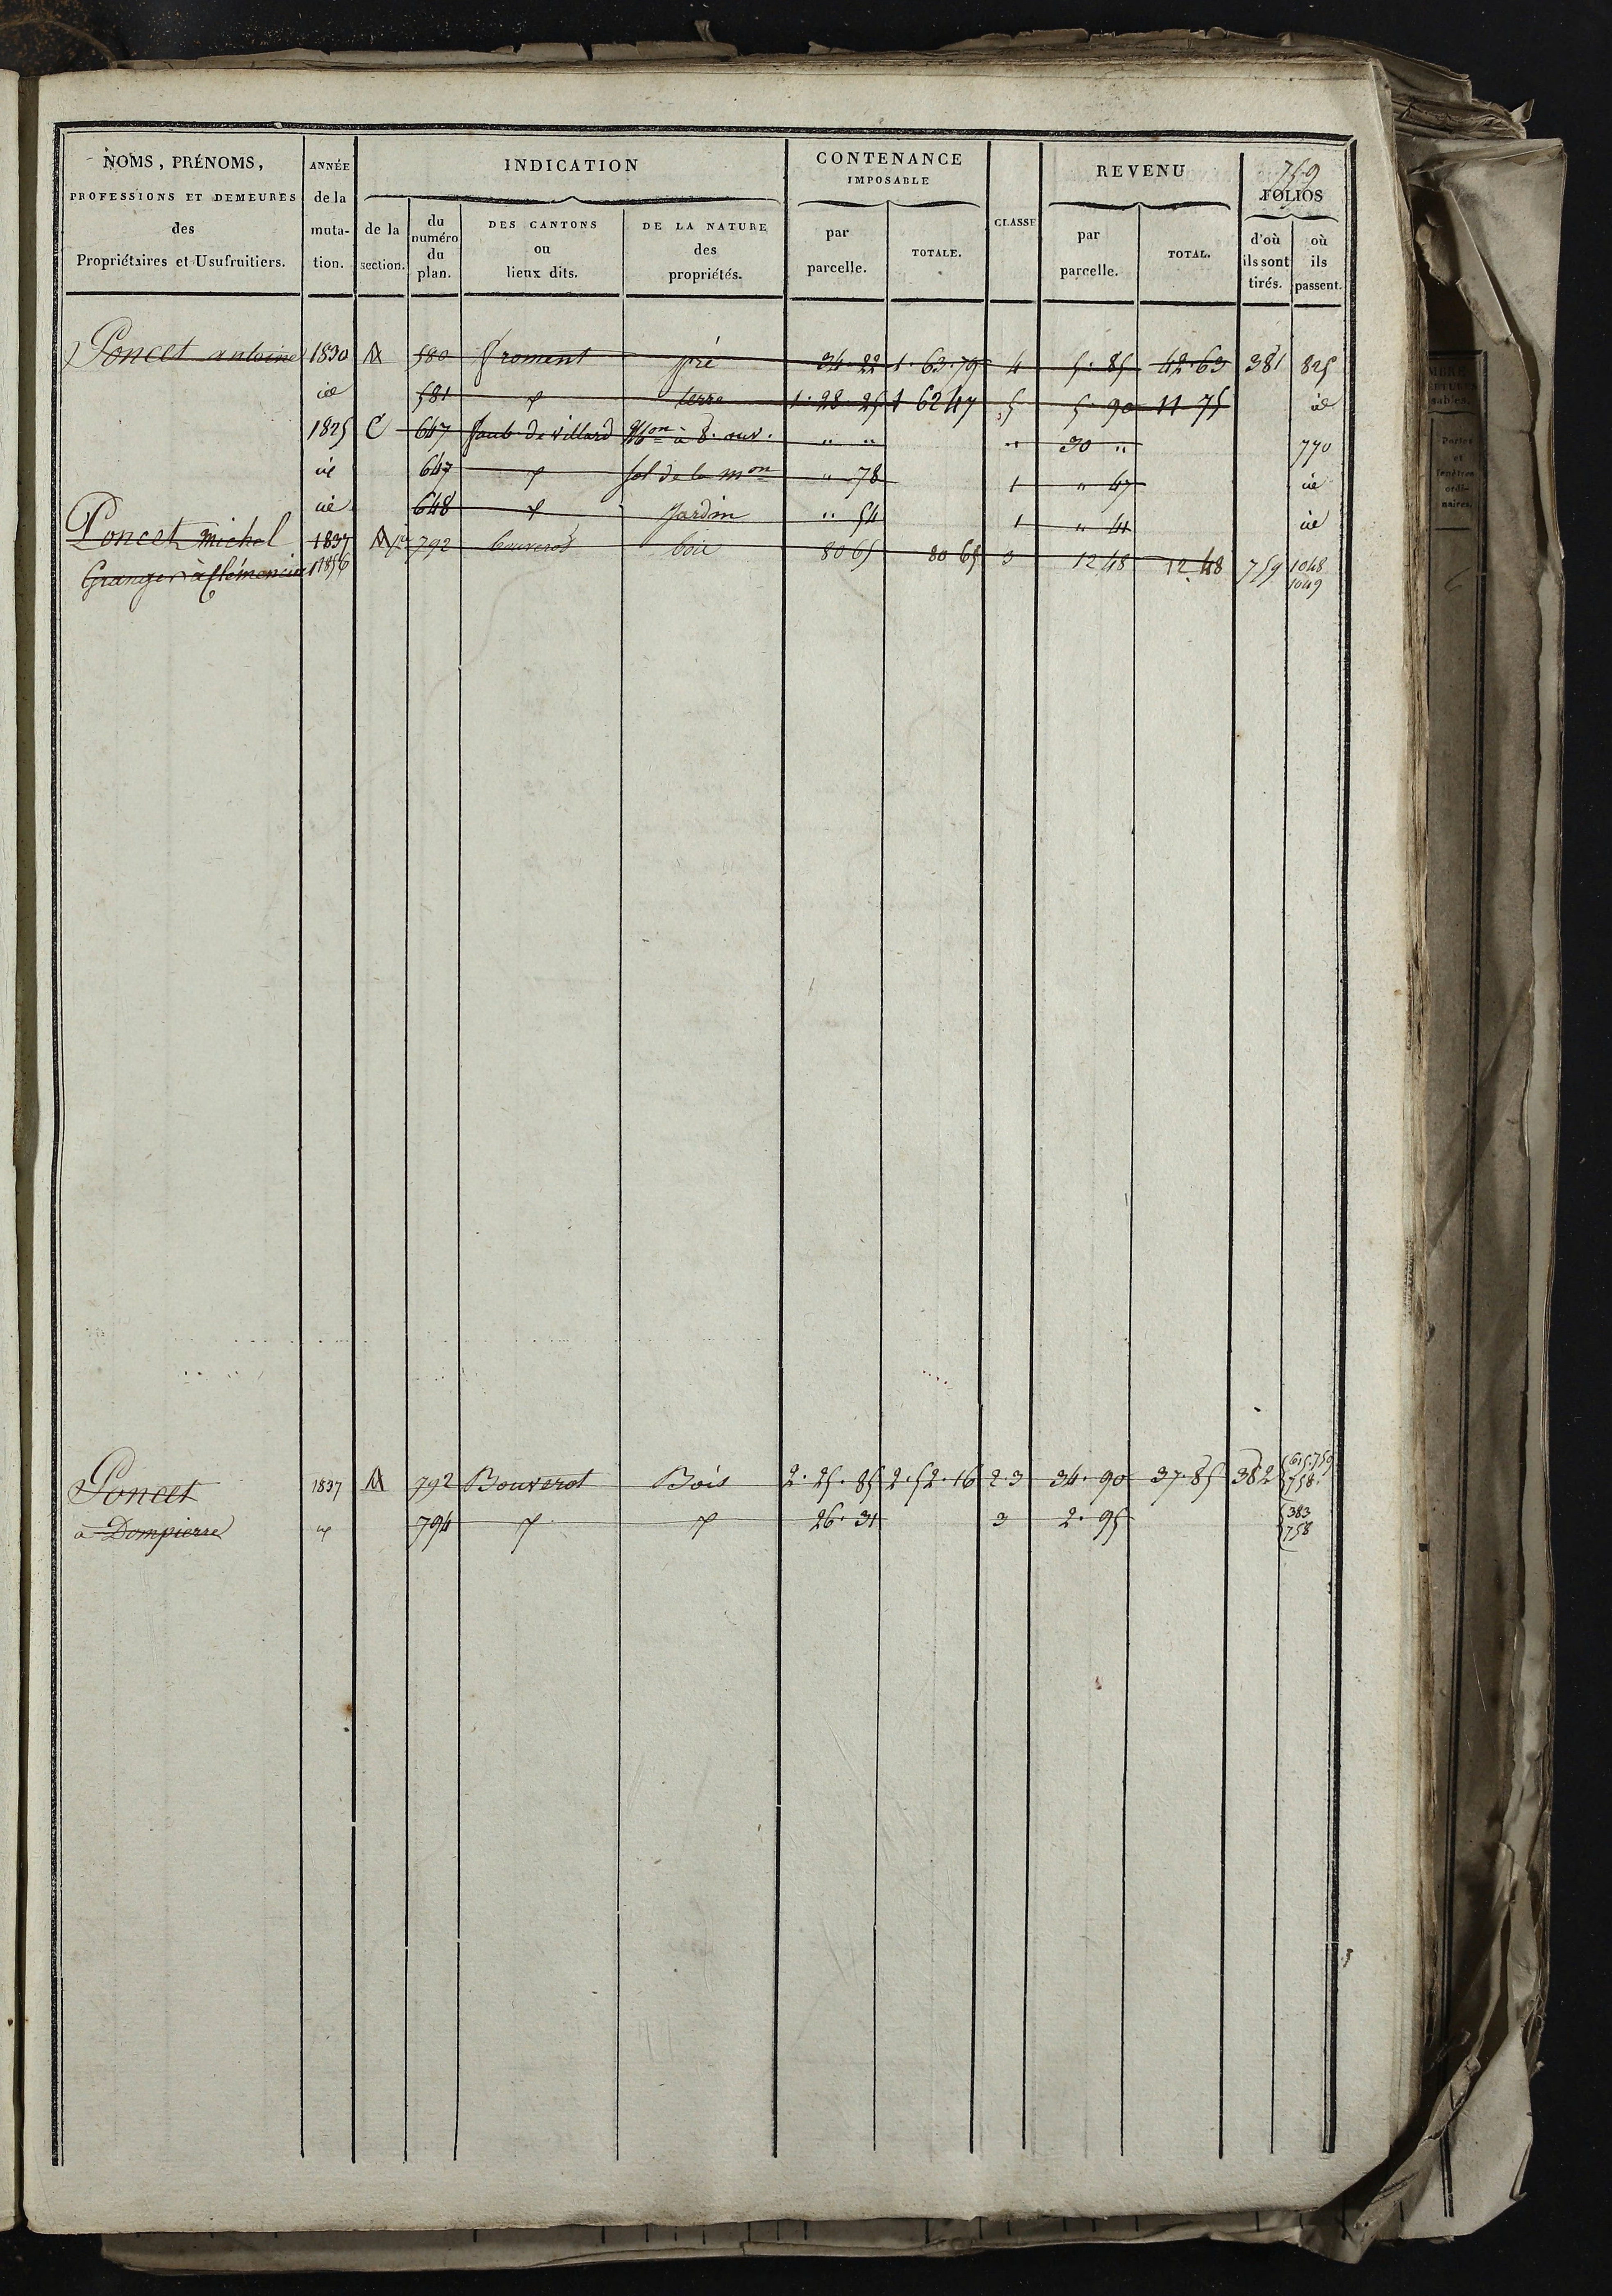 759
NOMS, PRÉNOMS, PROFESSIONS ET DEMEURES des Propriétaires et Usufruitiers.
ANNÉE de la muta-tion.
INDICATION
de la section.
du numéro du plan.
DES CANTONS ou lieux dits.
DE LA NATURE des propriétés.
CONTENANCE IMPOSABLE
par parcelle.
TOTALE.
CLASSE
REVENU
par parcelle.
TOTAL.
FOLIOS
d'où ils sont tirés.
où ils passent.
Poncet antoine 1830 M 580 froment pré 34. 22 1. 63. 79 4 5. 85 42. 63 381 825
id 581 terre 1. 28 25 1 62 47 5 5. 90 11 75 id
1825 C 647 faub. de villard Mon à 8. ouv. " " " 30 " 770
id 647 sol de la mon " 78 1 " 47 id
id 648 Jardin " 54 1 " 41 id
Poncet michel 1837 M 792 bouverot bois 80 65 80 65 3 12 48 12 48 759 1048
Granger à Clémencia 1856 1049
Poncet 1837 M 792 Bouverot Bois 2. 25. 85 2. 52. 16 2.3 34. 90 37. 85 382 615. 759 758
à Dompierre id 794 26. 31 3 2. 95 383 758